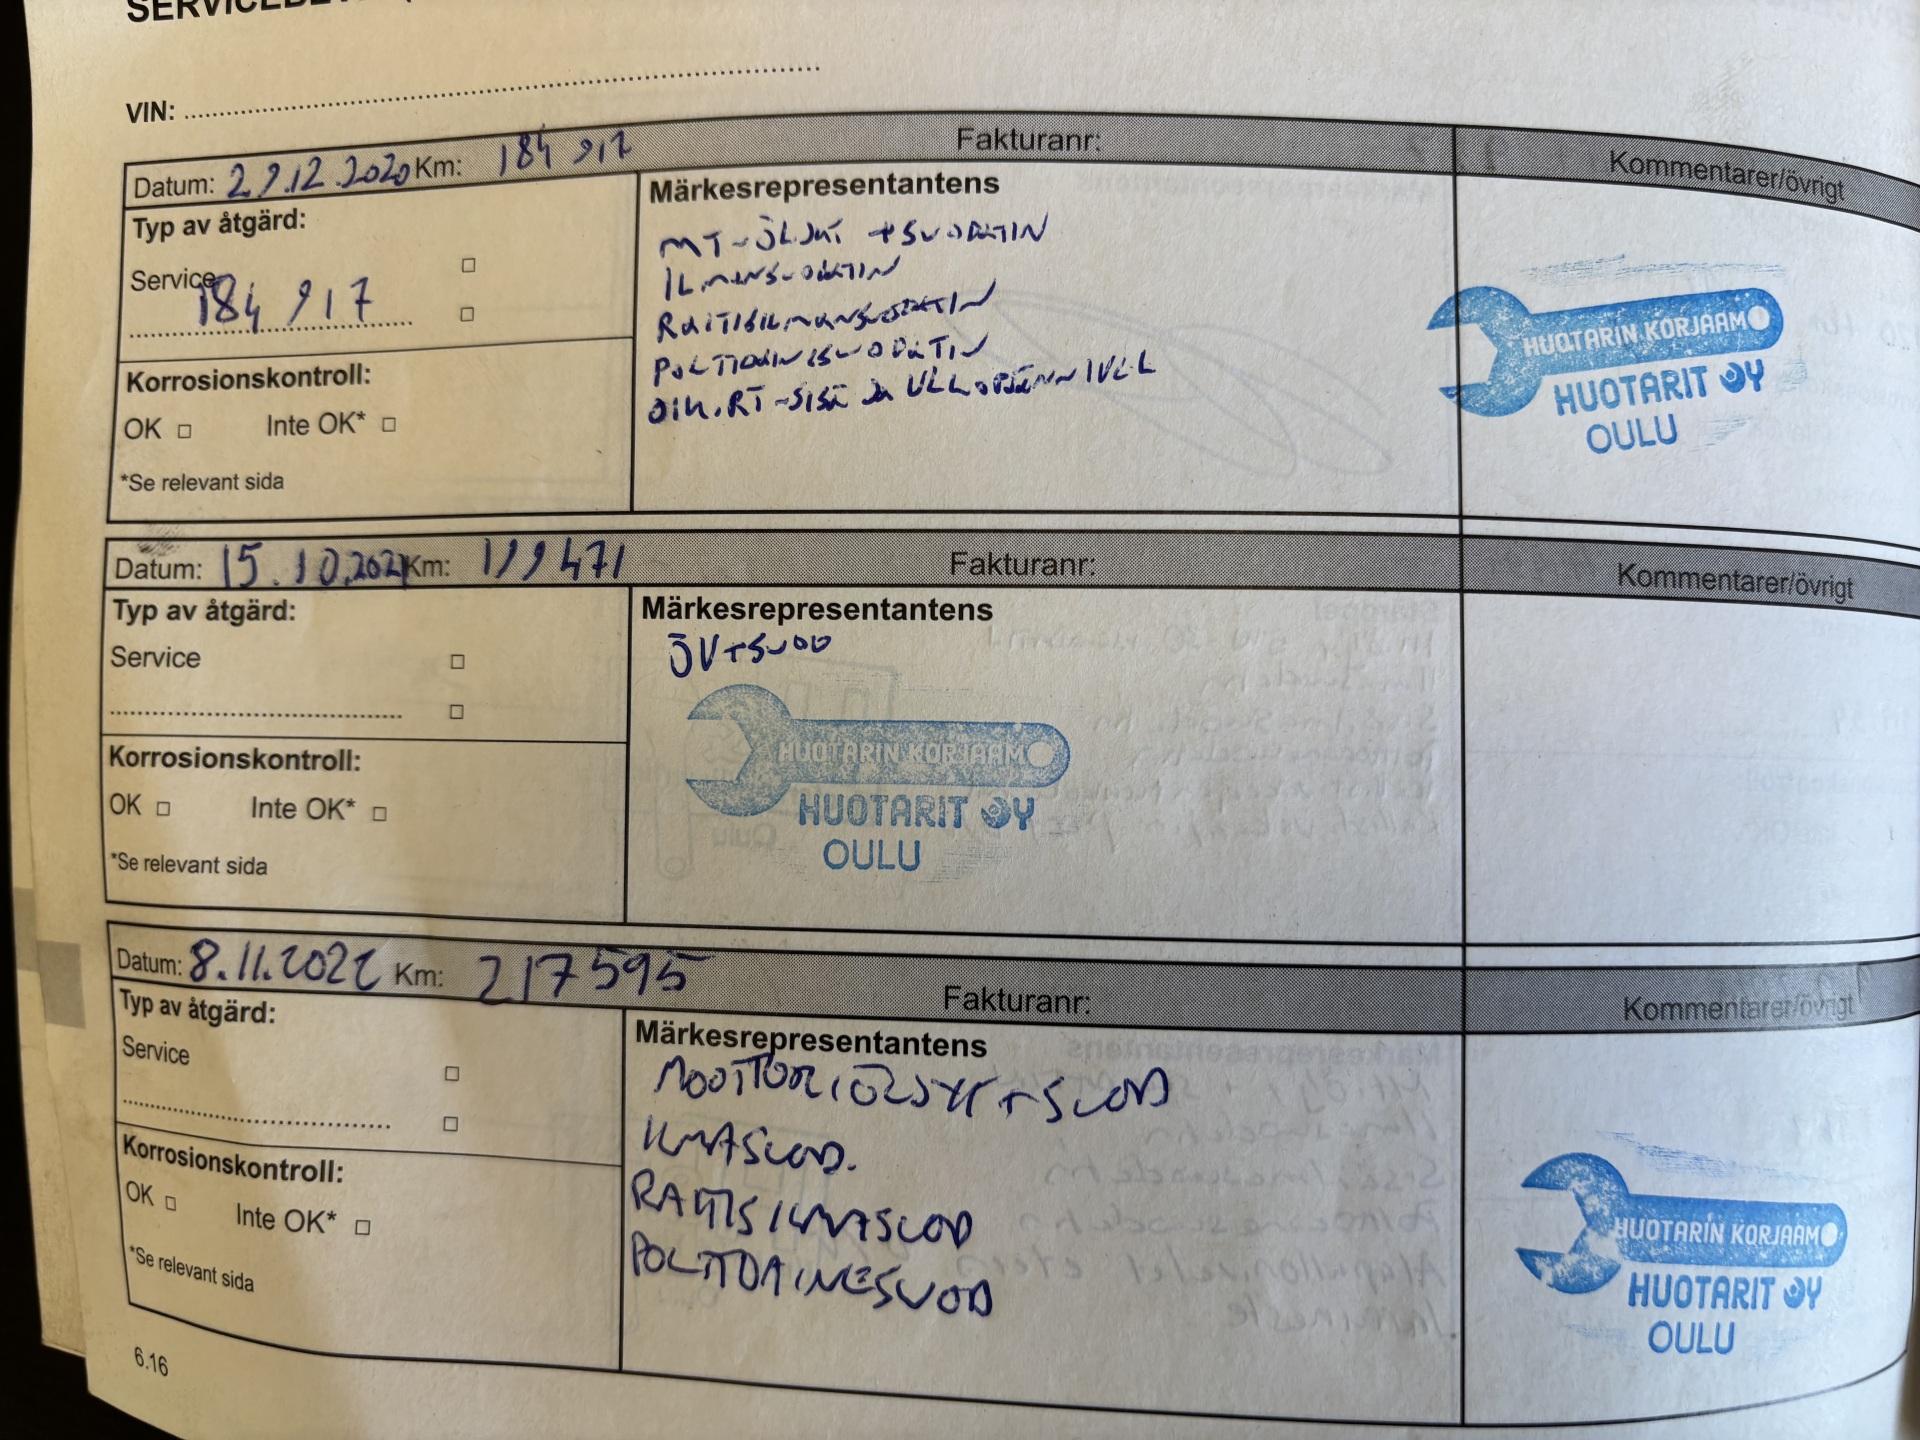 VIN:
Datum: 29.12.2020 Km: 184 917 Fakturanr: Kommentarer/övrigt
Typ av åtgärd:
Service
184 917
Korrosionskontroll:
OK Inte OK*
*Se relevant sida
Märkesrepresentantens
MT-ÖLJYT +SUODATIN
ILMANSUODATIN
RAITISILMANSUODATIN
POLTTOAINESUODATIN
OIK. RT-SISÄ JA
HUOTARIN KORJAAMO
HUOTARIT OY
OULU
Datum: 15.10.2021 Km: 199 471 Fakturanr: Kommentarer/övrigt
Typ av åtgärd:
Service
Korrosionskontroll:
OK Inte OK*
*Se relevant sida
Märkesrepresentantens
ÖV+SUOD
HUOTARIN KORJAAMO
HUOTARIT OY
OULU
Datum: 8.11.2022 Km: 217595 Fakturanr: Kommentarer/övrigt
Typ av åtgärd:
Service
Korrosionskontroll:
OK Inte OK*
*Se relevant sida
Märkesrepresentantens
MOOTTORIÖLJYT + SUOD
ILMASUOD.
RAITISILMASUOD
POLTTOAINESUOD
HUOTARIN KORJAAMO
HUOTARIT OY
OULU
6.16